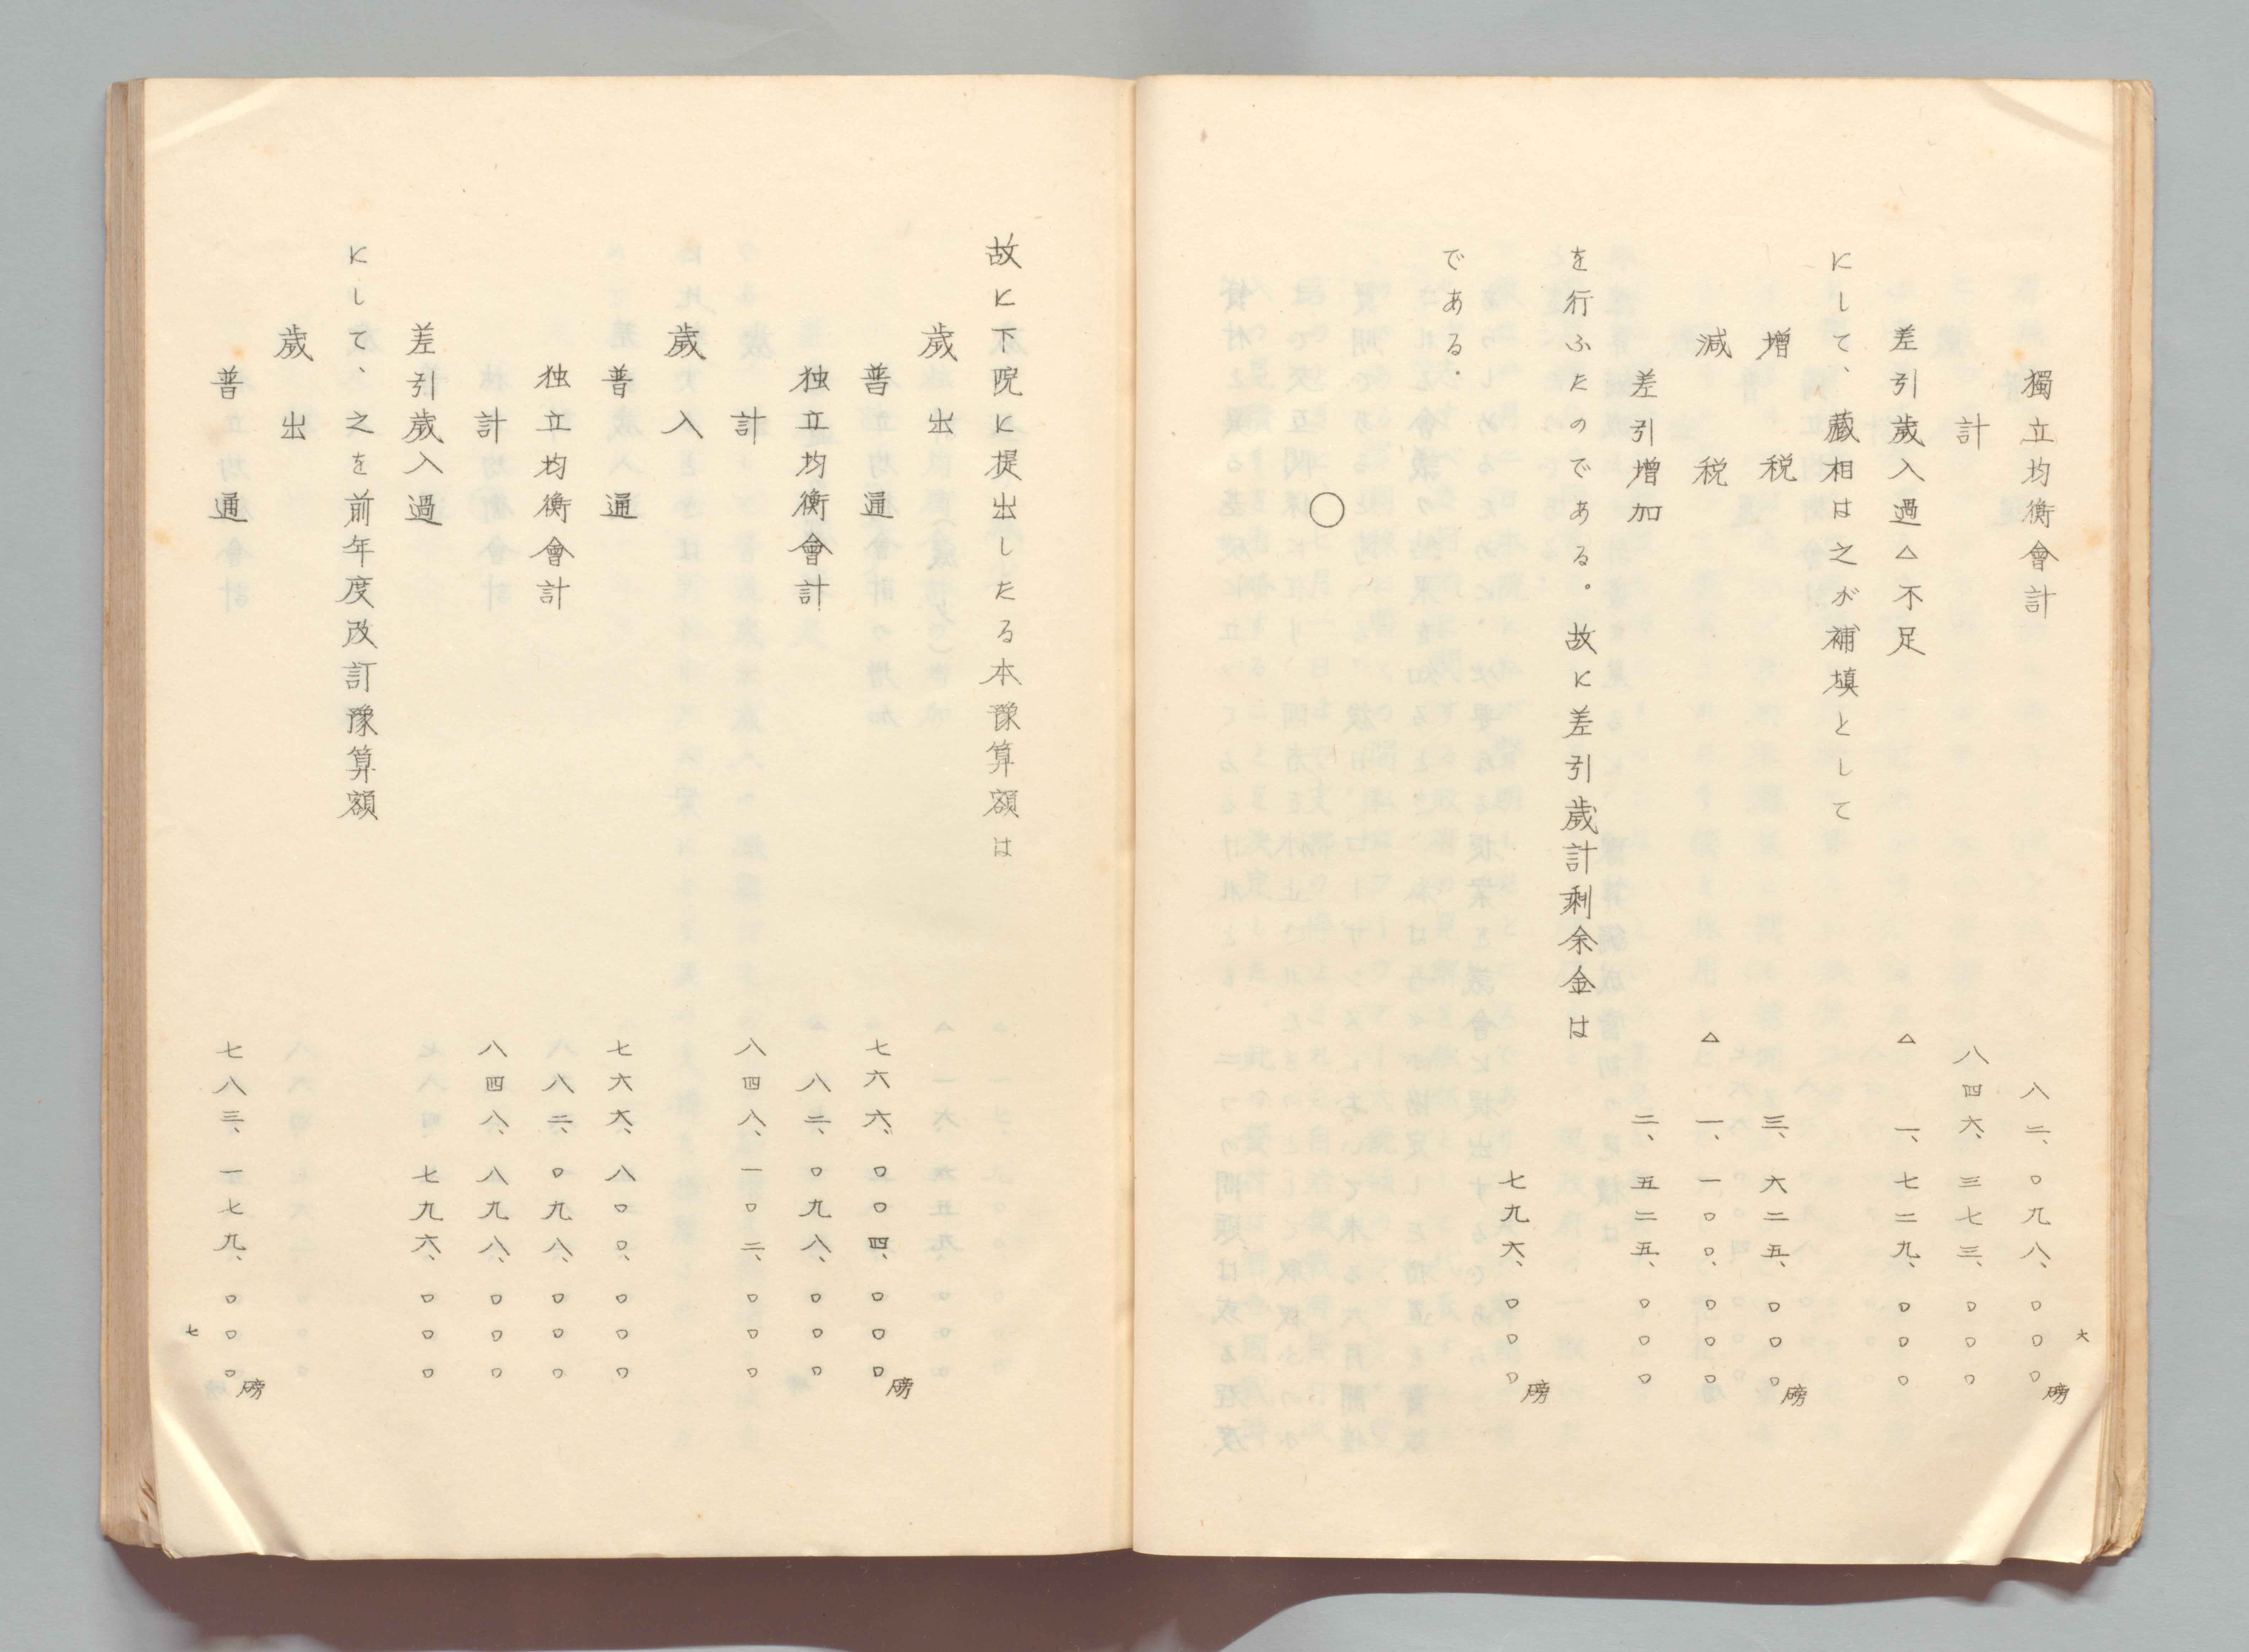 六
獨立均衡會計 八二、〇九八、〇〇〇磅
計 八四六、三七三、〇〇〇
差引歲入過△不足 △ 一、七二九、〇〇〇
にして、藏相は之が補填として
增稅 三、六二五、〇〇〇磅
減稅 △ 一、一〇〇、〇〇〇
差引增加 二、五二五、〇〇〇
を行ふたのである。故に差引歲計剩余金は
七九六、〇〇〇磅
である.
〇
故に下院に提出したる本豫算額は
歲出
普通 七六六、〇〇四、〇〇〇磅
独立均衡會計 八二、〇九八、〇〇〇
計 八四八、一〇二、〇〇〇
歲入
普通 七六六、八〇〇、〇〇〇
独立均衡會計 八二、〇九八、〇〇〇
計 八四八、八九八、〇〇〇
差引歲入過 七九六、〇〇〇
にして、之を前年度改訂豫算額
歲出
普通 七八三、一七九、〇〇〇磅
七